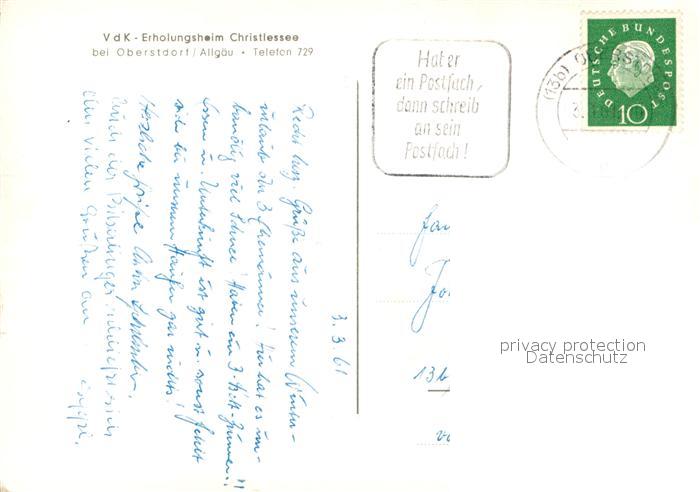 VdK - Erholungsheim Christlessee
bei Oberstdorf / Allgäu • Telefon 729
Hat er
ein Postfach,
dann schreib
an sein
Postfach!
(13b) OBERSTDORF
DEUTSCHE BUNDESPOST
10
3. 3. 61
Recht herz. Grüße aus unserem Winter-
urlaub der 3 Ehemänner! Hier hat es un-
heimlich viel Schnee! Haben ein 3-Bett-Zimmer!!
Essen u. Unterkunft ist gut u. sonst fehlt
sich bei unserm Haufen gar nichts!
Herzliche Grüße
Auch der
den vielen Grüßen an
13b
privacy protection
Datenschutz